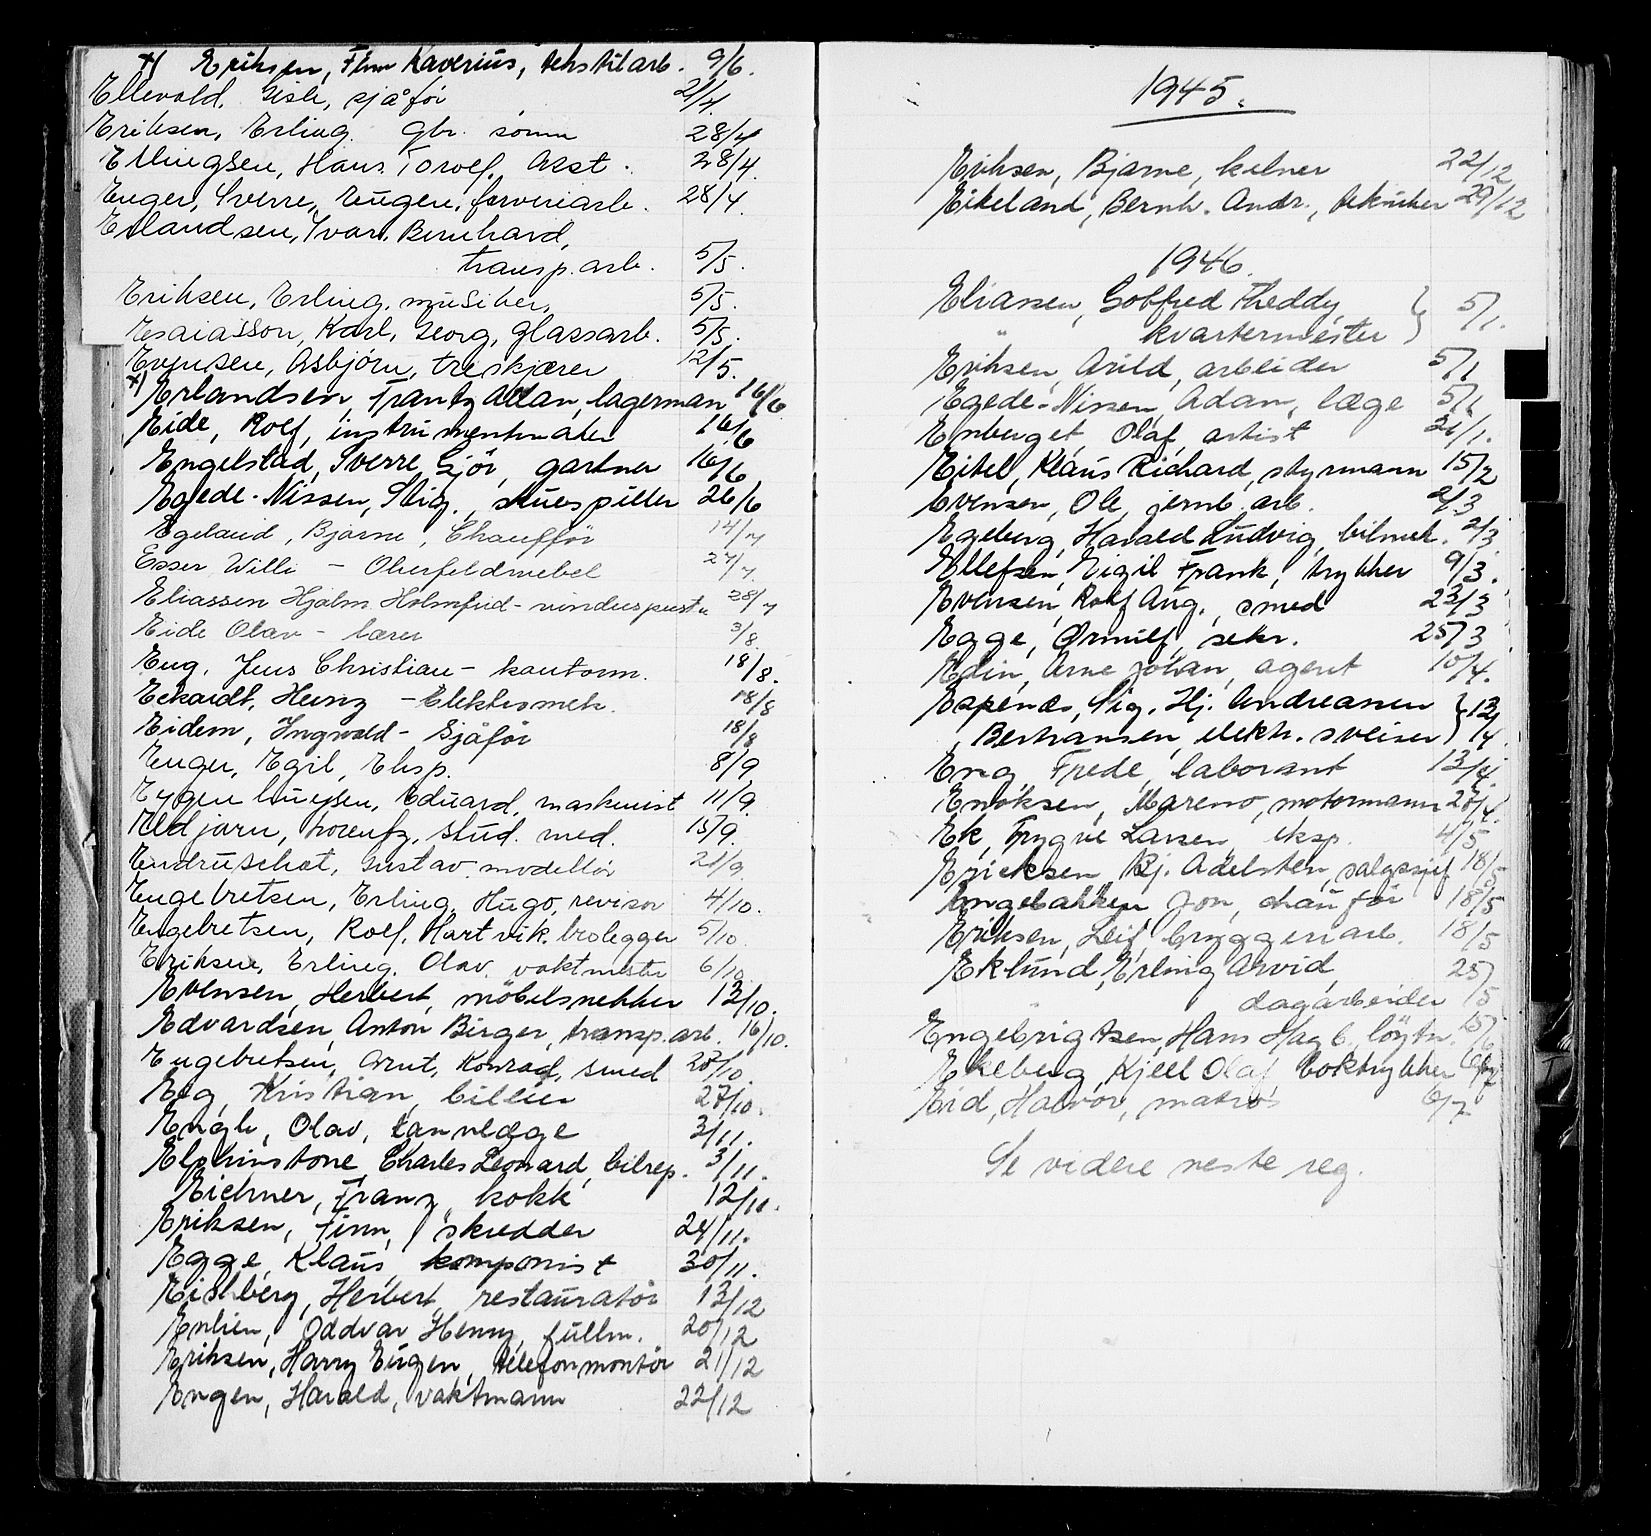 x) Eriksen, Finn Kaverius, tekstilarb. 9/6.
Ellevold, Gisle, sjåfør 21/4.
Eriksen, Erling. gbr. sønn 28/4
Ellingsen, Hans Torolf, Asst. 28/4.
Enger, Sverre, Eugen, farveriarb. 28/4.
Erlandsen, Ivar. Bernhard,
transp. arb. 5/5.
Eriksen, Erling, musiker, 5/5.
Esaiasson, Karl, Georg, glassarb. 5/5.
Evensen, Asbjörn, treskjærer 12/5.
x) Erlandsen, Frantz Allan, lagerman, 16/6
Eide, Rolf, instrumentmaker 16/6
Engelstad, Sverre Gjör, gartner 16/6
Egede-Nissen, Stig, skuespiller 26/6
Egeland, Bjarne, Chauffør 14/7
Esser Willi - Oberfeldwebel 27/7.
Eliassen Hjalm. Holmfrid - vinduspuss 28/7
Eide Olav - lærer 3/8.
Eng, Jens Christian - kontorm. 18/8.
Eckardt, Heinz - Elektromek. 18/8
Eidem, Ingvald - Sjåfør 18/8
Enger, Egil, Eksp. 8/9.
Eduard, maskinist 11/9.
Eldjarn, Lorentz, stud. med. 15/9.
Endruschat, Gustav. modellör 21/9.
Engebretsen, Erling, Hugo, revisor 4/10.
Engebretsen, Rolf, Hartvik, brolegger 5/10.
Eriksen, Erling. Olav, vaktmester 6/10.
Evensen, Herbert, möbelsnekker 13/10.
Edvardsen, Anton Birger, transp. arb. 16/10.
Engebretsen, Arnt, Konrad, smed 20/10.
Eng, Kristian, billeier 27/10.
Engh, Olav, tannlæge 3/11.
Elphinstone, Charles Leonard, bilrep. 3/11.
Eichner, Franz, kokk 12/11.
Eriksen, Finn, skredder 24/11.
Egge, Klaus, komponist 30/11.
Eichberg, Herbert, restauratör 13/12
Enlien, Oddvar Henry, fullm. 20/12
Eriksen, Harry Eugen, telefonmontör 21/12
Engen, Harald, vaktmann 22/12
1945.
Eriksen, Bjarne, kelner 22/12
Eikeland, Bernh. Andr., tekniker 29/12
1946.
Eliassen, Gotfred Theddy,
" kvartermester } 5/1.
Eriksen, Arild, arbeider 5/1
Egede-Nissen, Adan, læge 5/1
Enberget, Olaf, artist 26/1.
Eitel, Klaus Richard, styrmann 15/2
Evensen, Ole, jernb. arb. 2/3
Egeberg, Harald Ludvig, bilmek. 2/3
Ellefsen, Eigil Frank, trykker 9/3.
Evensen, Rolf Aug., smed 23/3
Egge, Ørnulf, sekr. 25/3
Edin, Arne Johan, agent 10/4.
Espenæs, Sig. Hj. Andreassen
Bertransen, elektr. sveiser } 13/4
Eng, Frede, laborant 13/4.
Enoksen, Mareno, motormann 28/4.
Ek, Trygve Larsen, eksp. 4/5
Ericksen, Bj. Adelsten, salgssjef 18/5
Engebakken, Jon, chauför 18/5
Eriksen, Leif, bryggeriarb. 18/5
Eklund, Erling Arvid,
" dagarbeider 25/5
Engebrigtsen, Hans Hagb. löytn. 15/6
Ekeberg, Kjell Olaf, boktrykker 6/7
Eid, Halvor, matros 6/7
Se videre neste reg.